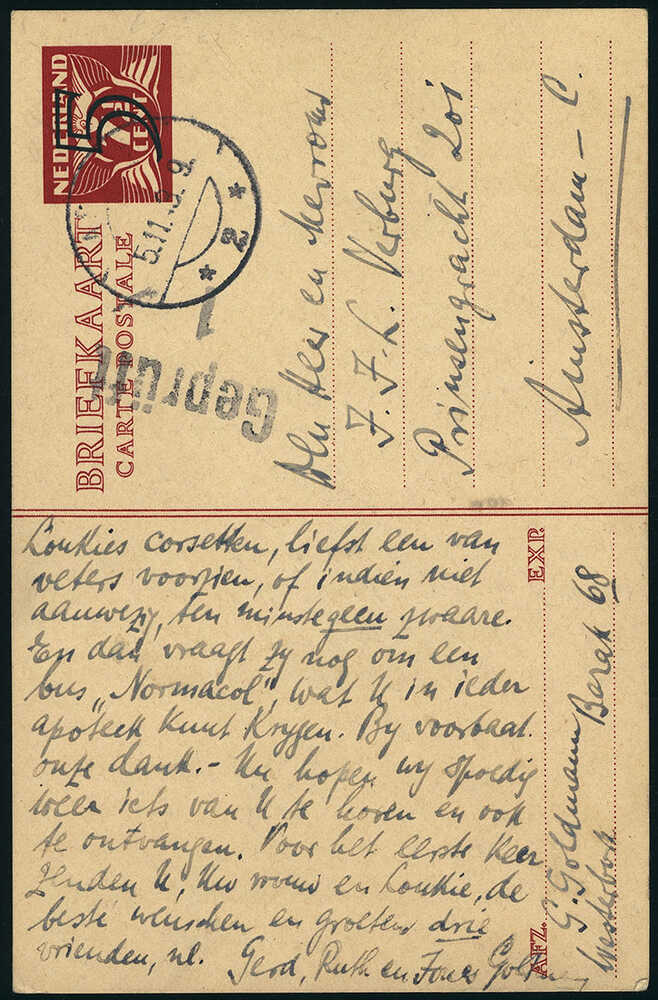 NEDERLAND
7½ CENT
5
BRIEFKAART
CARTE POSTALE
5.11. 9.
* 2 *
Geprüft
1
Den Heer en Mevrouw
J. J. L. Verburg
Prinsengracht 201
Amsterdam - C.
Loukies corsetten, liefst een van
veters voorzien, of indien niet
aanwezig, ten minste geen zwaare.
En dan vraagt zy nog om een
bus „Normacol", wat U in ieder
apoteek kunt krygen. By voorbaat
onze dank. - Nu hopen wy spoedig
weer iets van U te horen en ook
te ontvangen. Voor het eerste keer
zenden U, Uw vrouw en Loukie, de
beste wenschen en groeten drie
vrienden, nl. Gerd, Ruth en
EXP.
AFZ.
G. Goldmann Barak 68
Westerbork